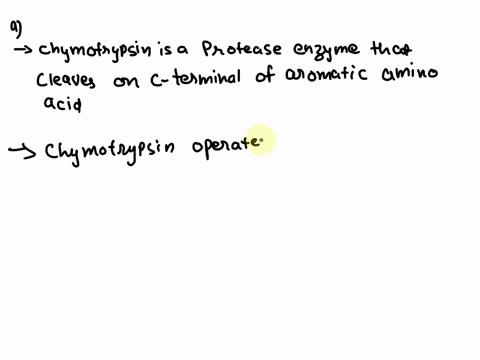 a)
→ Chymotrypsin is a Protease enzyme that
Cleaves on C-terminal of aromatic amino
acid
→ Chymotrypsin operate